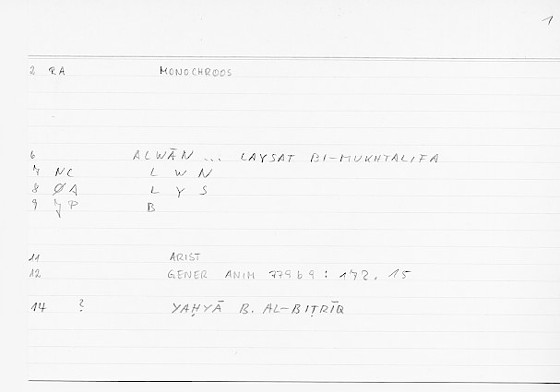 1
2 RA MONOCHROOS
6 ALWĀN ... LAYSAT BI-MUKHTALIFA
7 NC L W N
8 ØA L Y S
9 7P B
11 ARIST
12 GENER ANIM 779b9 : 172.15
14 ? YAḤYĀ B. AL-BIṬRĪQ